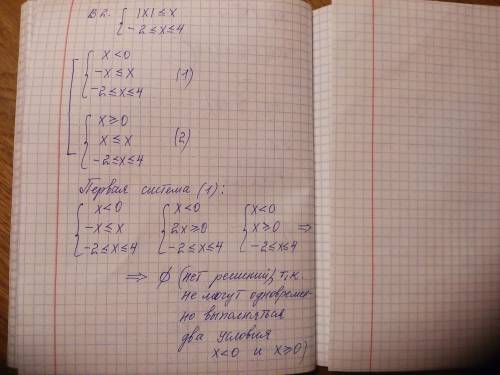 В 2. { |x| ≤ x
-2 ≤ x ≤ 4
[ { x < 0
-x ≤ x (1)
-2 ≤ x ≤ 4
{ x ≥ 0
x ≤ x (2)
-2 ≤ x ≤ 4
Первая система (1):
{ x < 0 { x < 0 { x < 0
-x ≤ x 2x ≥ 0 x ≥ 0 ⇒
-2 ≤ x ≤ 4 -2 ≤ x ≤ 4 -2 ≤ x ≤ 4
⇒ ∅ (нет решений), т.к
не могут одновремен-
но выполняться
два условия
x < 0 и x ≥ 0)